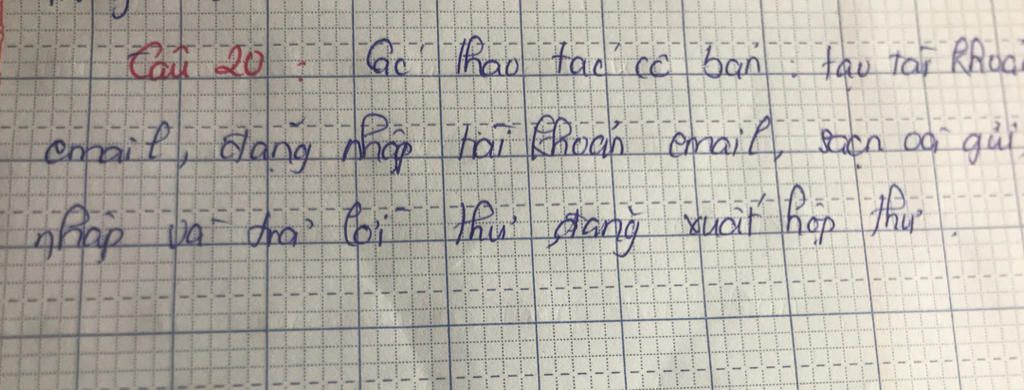 Câu 20 : Các thao tác cơ bản : tạo tài khoả
email, đăng nhập tài khoản email, soạn và gửi,
nhập và trả lời thư đăng xuất hộp thư.